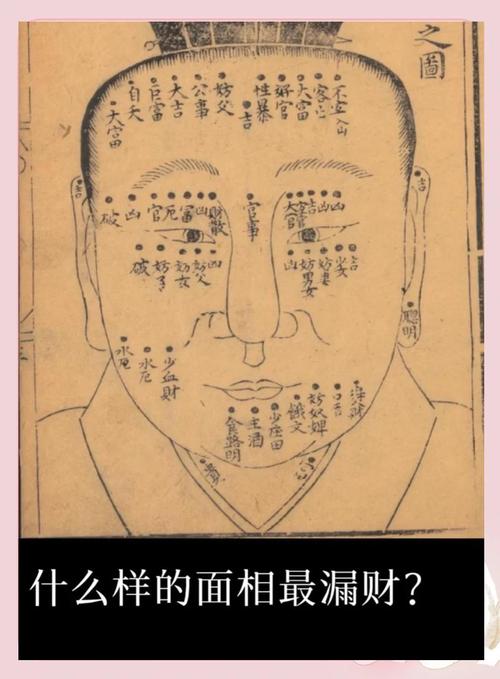 之圖
不宜入山
客亡
大富
好官
性暴
吉
妨父
公事
大吉
巨富
自夭
大富田
吉
凶
凶
吉
官事
財散
凶
富
厄
官
凶
破
吉
少女
妨妻
妨男女
凶
凶
妨父
妨女
妨子
破
聰明
水厄
水厄
少血財
口吉
妨奴婢
少庄田
主酒
食路明
什么样的面相最漏财？